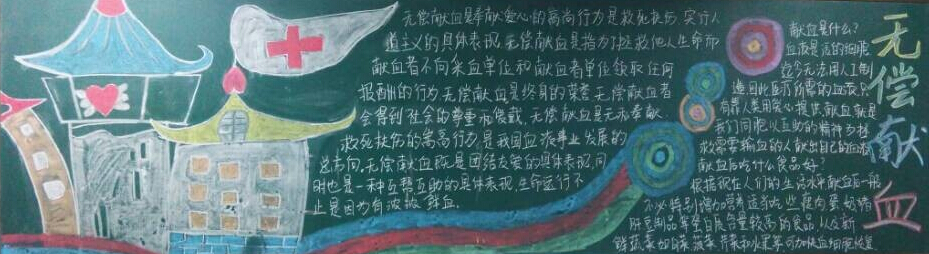 无偿献血
无偿献血是奉献爱心的高尚行为是救死扶伤,实行人
道主义的具体表现,无偿献血是指为了拯救他人生命而
献血者不向采血单位和献血者单位领取任何
报酬的行为.无偿献血是终身的荣誉无偿献血者
会得到社会的尊重和爱戴,无偿献血是无私奉献
救死扶伤的崇高行为,是我国血液事业发展的
总方向.无偿献血既是团结友爱的具体表现,同
时也是一种互帮互助的具体表现,生命运行不
止是因为有滚滚鲜血.
献血是什么?
血液是
用人工制
造因此医疗所需的血液只
有靠人类用爱心提供,献血就是
我们同胞以互助的精神为拯
救需要输血的人献出自己的血液
献血后吃什么食品好?
根据现在人们的生活水平献血后一般
不必特别增加营养适当吃些瘦肉蛋奶猪
肝豆制品等蛋白质含量较高的食品,以及新
鲜蔬菜如白菜菠菜芹菜和水果等可加快血细胞恢复